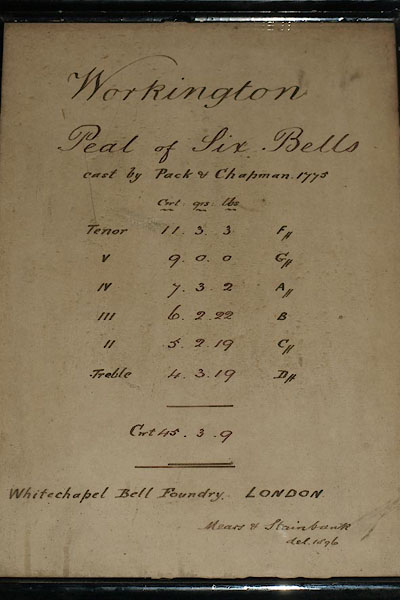 Workington
Peal of Six Bells
cast by Pack & Chapman. 1775
Cwt qrs lbs
Tenor 11. 3. 3 F#
V 9. 0. 0 G#
IV 7. 3. 2 A#
III 6. 2. 22 B
II 5. 2. 19 C#
Treble 4. 3. 19 D#
Cwt 45. 3. 9
Whitechapel Bell Foundry. LONDON
Mears & Stainbank
del. 1896